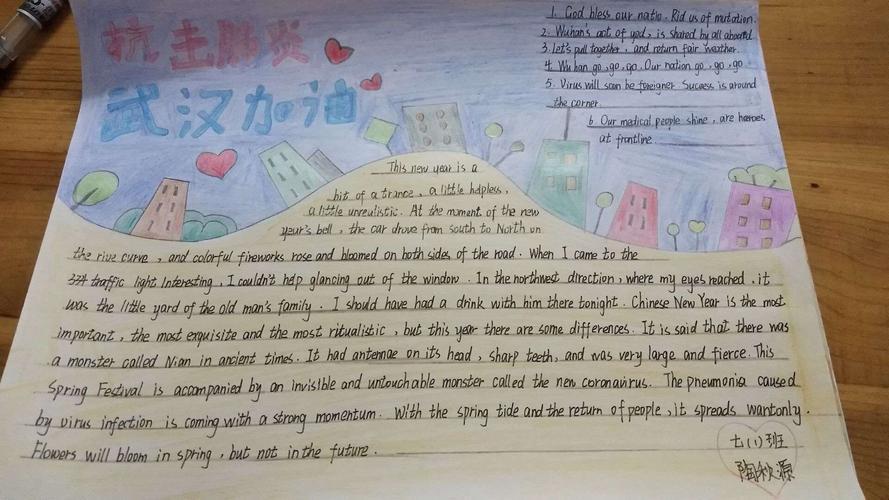 抗击肺炎
武汉加油
1. God bless our natio. Rid us of mutation.
2. Wuhan's act of god, is shared by all aboard
3. let's pull together, and return fair weather.
4. Wuhan go, go, go. Our nation go, go, go
5. Virus will soon be foreigner Success is around
the corner.
6. Our medical people shine, are heroes
at frontline.
This new year is a
bit of a trance, a little helpless,
a little unrealistic. At the moment of the new
year's bell, the car drove from south to North on
the rive curve, and colorful fireworks rose and bloomed on both sides of the road. When I came to the
traffic light Interesting, I couldn't help glancing out of the window. In the northwest direction, where my eyes reached, it
was the little yard of the old man's family. I should have had a drink with him there tonight. Chinese New Year is the most
important, the most exquisite and the most ritualistic, but this year there are some differences. It is said that there was
a monster called Nian in ancient times. It had antennae on its head, sharp teeth, and was very large and fierce. This
Spring Festival is accompanied by an invisible and untouchable monster called the new coronavirus. The pneumonia caused
by virus infection is coming with a strong momentum. With the spring tide and the return of people, it spreads wantonly.
Flowers will bloom in spring, but not in the future.
七(1)班
陶秋源